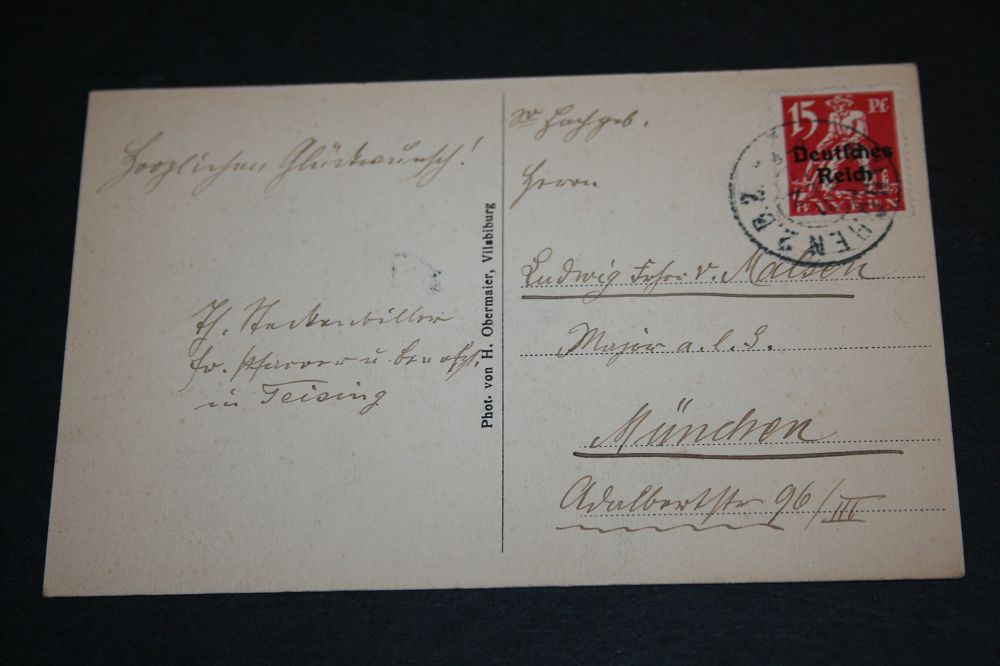 Herzlichen Glückwunsch!
Th. Steckenbiller
fr. Pfarrer u. Benefiz.
in Teising
Phot. von H. Obermaier, Vilsbiburg
Sr Hochgeb.
Herrn
Ludwig Frhr v. Malsen
Major a. D.
München
Adalbertstr 96/III
15 Pf.
Deutsches
Reich
BAYERN